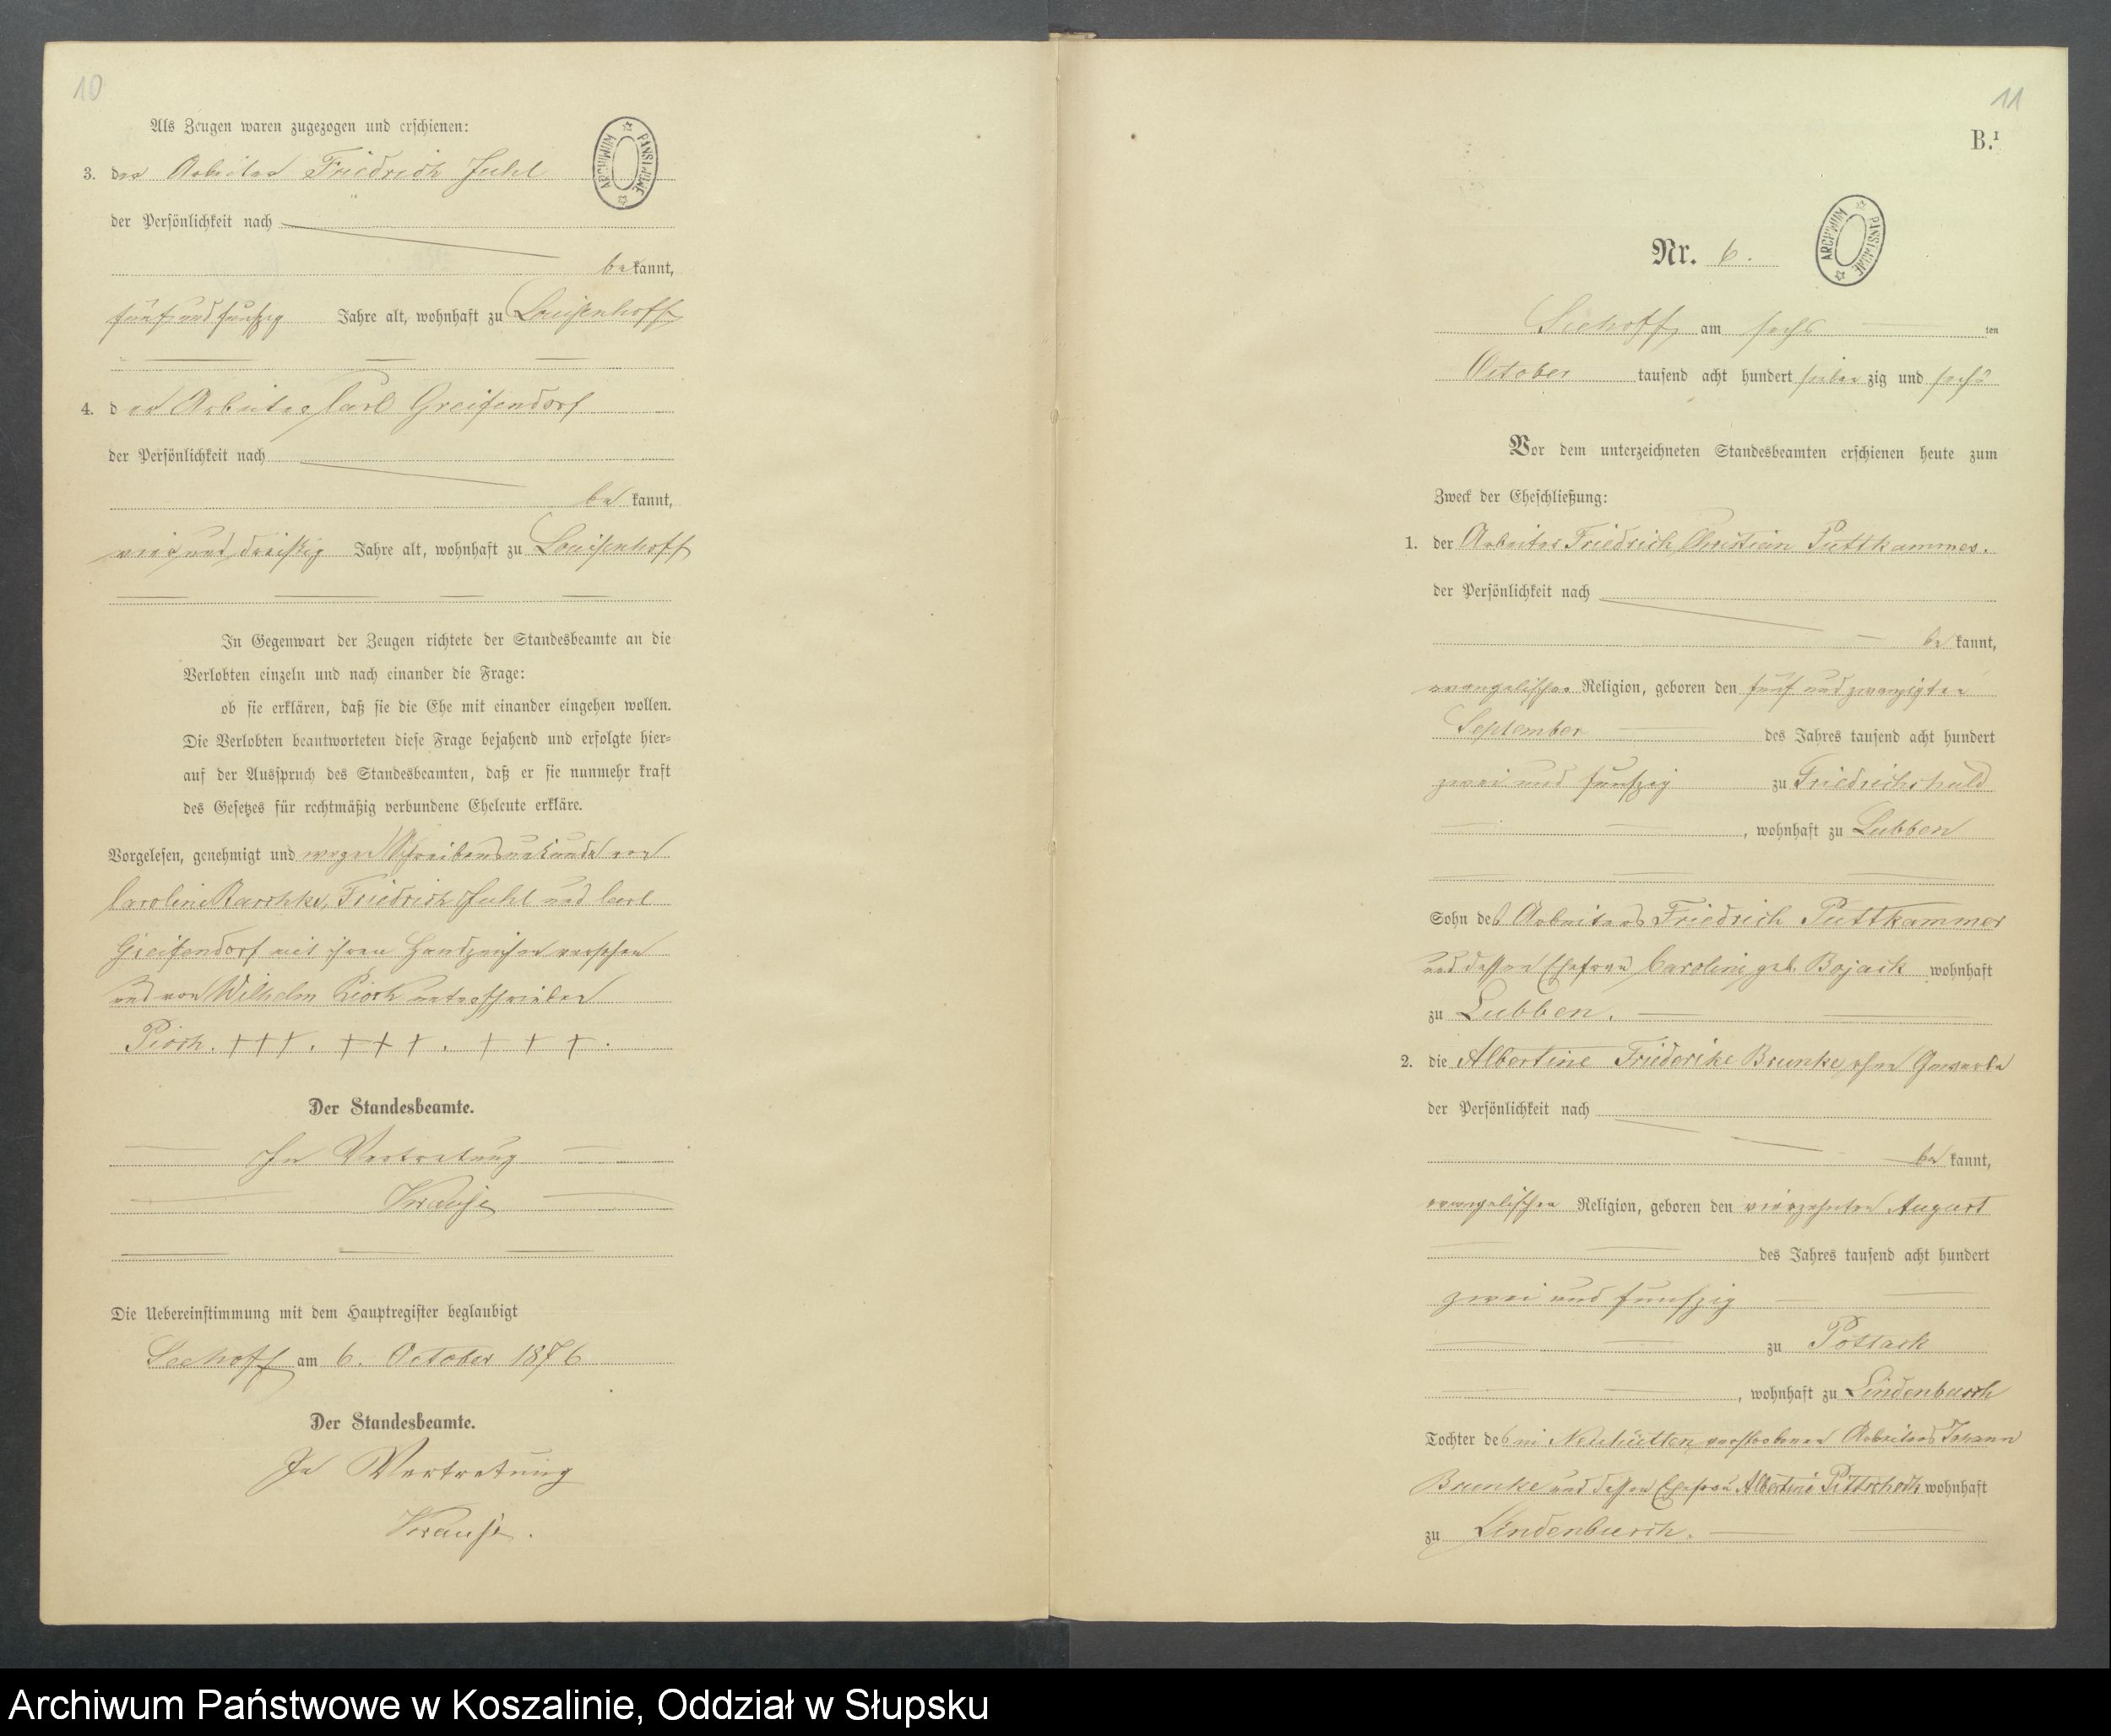 10
Als Zeugen waren zugezogen und erschienen:
3. der Arbeiter Friedrich Juhl
der Persönlichkeit nach
bekannt,
fünf und funfzig Jahre alt, wohnhaft zu Louisenhoff
4. der Arbeiter Carl Greifendorf
der Persönlichkeit nach
be kannt,
vier und dreißig Jahre alt, wohnhaft zu Louisenhoff
In Gegenwart der Zeugen richtete der Standesbeamte an die
Verlobten einzeln und nach einander die Frage:
ob sie erklären, daß sie die Ehe mit einander eingehen wollen.
Die Verlobten beantworteten diese Frage bejahend und erfolgte hier-
auf der Ausspruch des Standesbeamten, daß er sie nunmehr kraft
des Gesetzes für rechtmäßig verbundene Eheleute erkläre.
Vorgelesen, genehmigt und wegen Schreibensunkunde von
Caroline Friedrich Juhl und Carl
Greifendorf mit ihren Handzeichen versehen
und von Wilhelm Piosch unterschrieben
Piosch. +++. +++. +++.
Der Standesbeamte.
In Vertretung
Krause
Die Uebereinstimmung mit dem Hauptregister beglaubigt
Seehoff am 6. October 1876
Der Standesbeamte.
In Vertretung
Krause.
ARCHIWUM PAŃSTWOWE
11
B.¹
Nr. 6.
ARCHIWUM PAŃSTWOWE
Seehoff am sechs ten
October tausend acht hundert sieben zig und sechs
Vor dem unterzeichneten Standesbeamten erschienen heute zum
Zweck der Eheschließung:
1. der Arbeiter Friedrich Christian Puttkammer.
der Persönlichkeit nach
be kannt,
evangelischer Religion, geboren den fünf und zwanzigsten
September des Jahres tausend acht hundert
zwei und funfzig zu Friedrichshuld
, wohnhaft zu Lubben
Sohn des Arbeiters Friedrich Puttkammer
und dessen Ehefrau Caroline geb. Bojack wohnhaft
zu Lubben.
2. die Albertine Friederike Brunke, ohne Gewerbe
der Persönlichkeit nach
be kannt,
evangelischen Religion, geboren den vierzehnten August
des Jahres tausend acht hundert
zwei und funfzig
zu Pottack
, wohnhaft zu Lindenbusch
Tochter des in Neuhütten verstorbenen Arbeiters Johann
Brunke und dessen Ehefrau Albertine wohnhaft
zu Lindenbusch.
Archiwum Państwowe w Koszalinie, Oddział w Słupsku